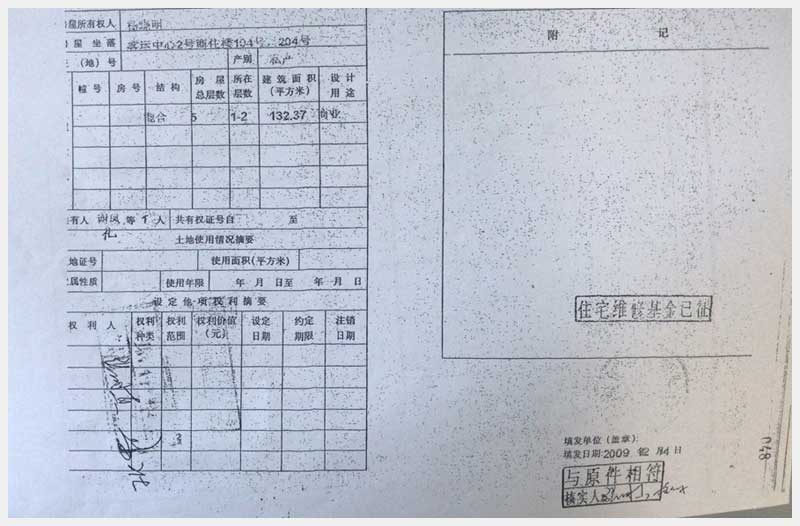 屋所有权人
屋 坐落 客运中心2号商住楼104号、204号
(地)号 产别 私产
幢号 房号 结构 房屋总层数 所在层数 建筑面积(平方米) 设计用途
混合 5 1-2 132.37 商业
有人 等 人 共有权证号自 至
土地使用情况摘要
地证号 使用面积(平方米)
属性质 使用年限 年 月 日至 年 月 日
设定他项权利摘要
权利人 权利种类 权利范围 权利价值(元) 设定日期 约定期限 注销日期
附 记
住宅维修基金已征
填发单位(盖章):
填发日期:2009
048
与原件相符
核实人